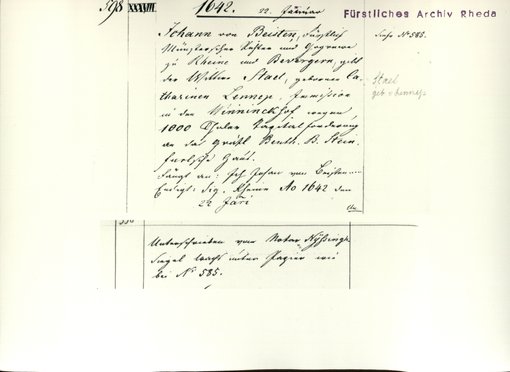 598 XXXVIII. 1642. 22. Januar
Fürstliches Archiv Rheda
Johann von Beisten, Fürstlich
Münsterscher Richter und Gograve
zu Rheine und Bevergern, gibt
der Wittwe Stael, geborenen Ca-
tharinen Lennep, Immission
in den Winninckhof wegen
1000 Thaler Capitalforderung
an das Gräfl. Benth. B. Stein-
furtsche Haus.
Fängt an: Ich Johan von Beisten
Endigt: Sig. Rheine Ao 1642 den
22 Jari
Siehe No 585.
Stael
geb. v. Lennep
Unterschrieben vom Notar
Siegel Wachs unter Papier wie
bei No 585.